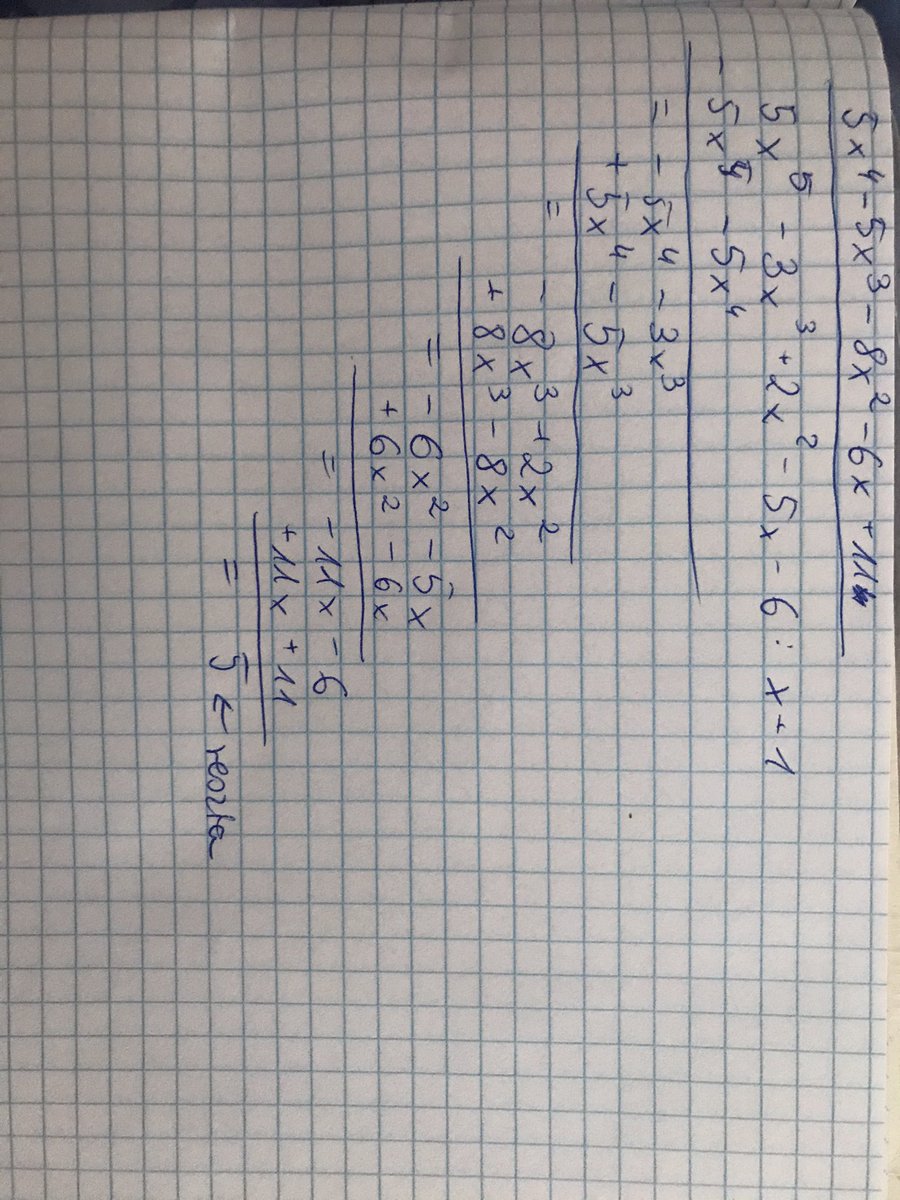 5x⁴ - 5x³ - 8x² - 6x + 11
5x⁵ - 3x³ + 2x² - 5x - 6 : x + 1
- 5x⁵ - 5x⁴
= - 5x⁴ - 3x³
+ 5x⁴ - 5x³
= - 8x³ + 2x²
+ 8x³ - 8x²
= - 6x² - 5x
+ 6x² - 6x
= - 11x - 6
+ 11x + 11
= 5 ← reszta